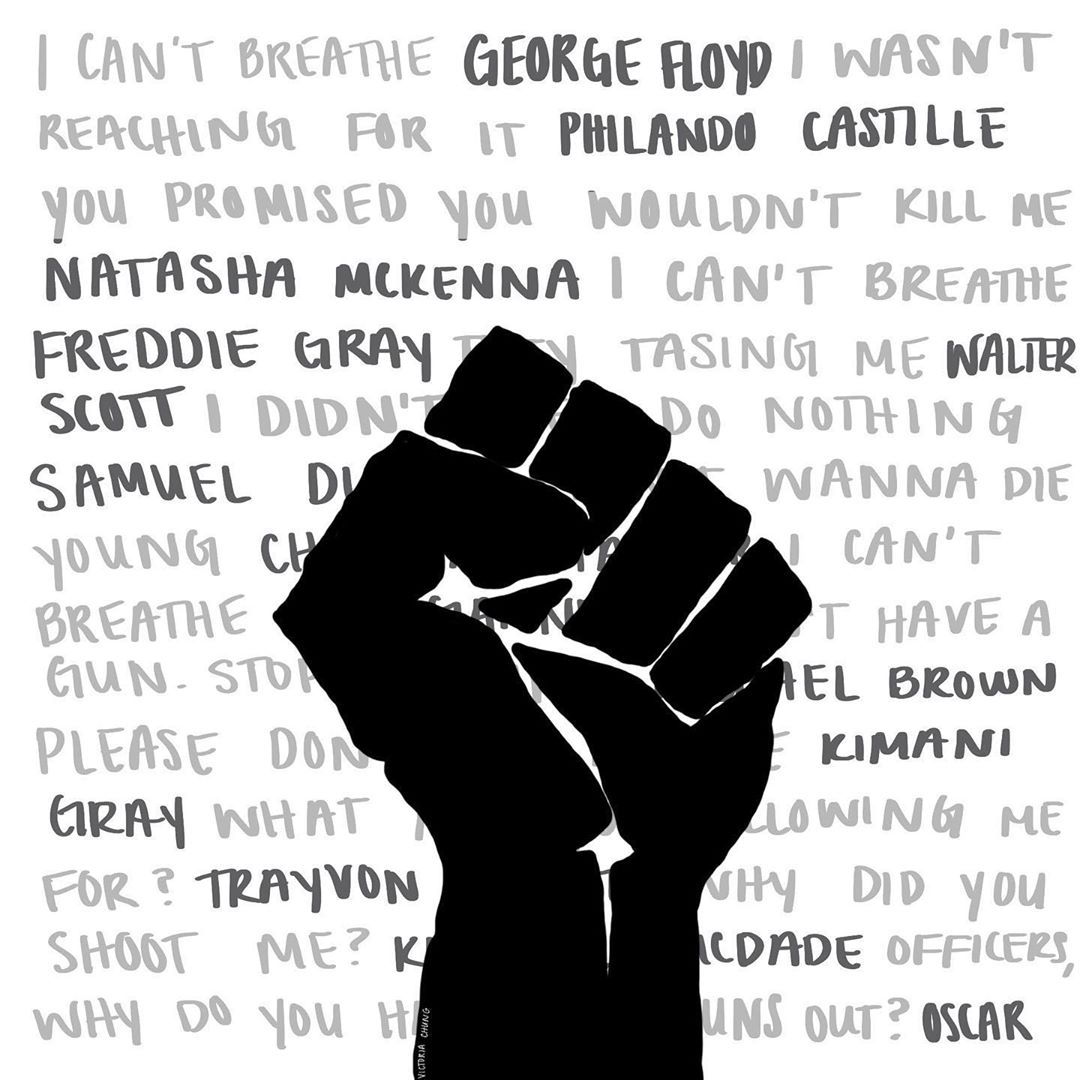 I CAN'T BREATHE GEORGE FLOYD I WASN'T
REACHING FOR IT PHILANDO CASTILLE
YOU PROMISED YOU WOULDN'T KILL ME
NATASHA MCKENNA I CAN'T BREATHE
FREDDIE GRAY TASING ME WALTER
SCOTT I DIDN'T DO NOTHING
SAMUEL WANNA DIE
YOUNG I CAN'T
BREATHE HAVE A
GUN. STOP BROWN
PLEASE KIMANI
GRAY WHAT ME
FOR? TRAYVON WHY DID YOU
SHOOT ME? MCDADE OFFICERS,
WHY DO YOU OUT? OSCAR
VICTORIA CHUNG